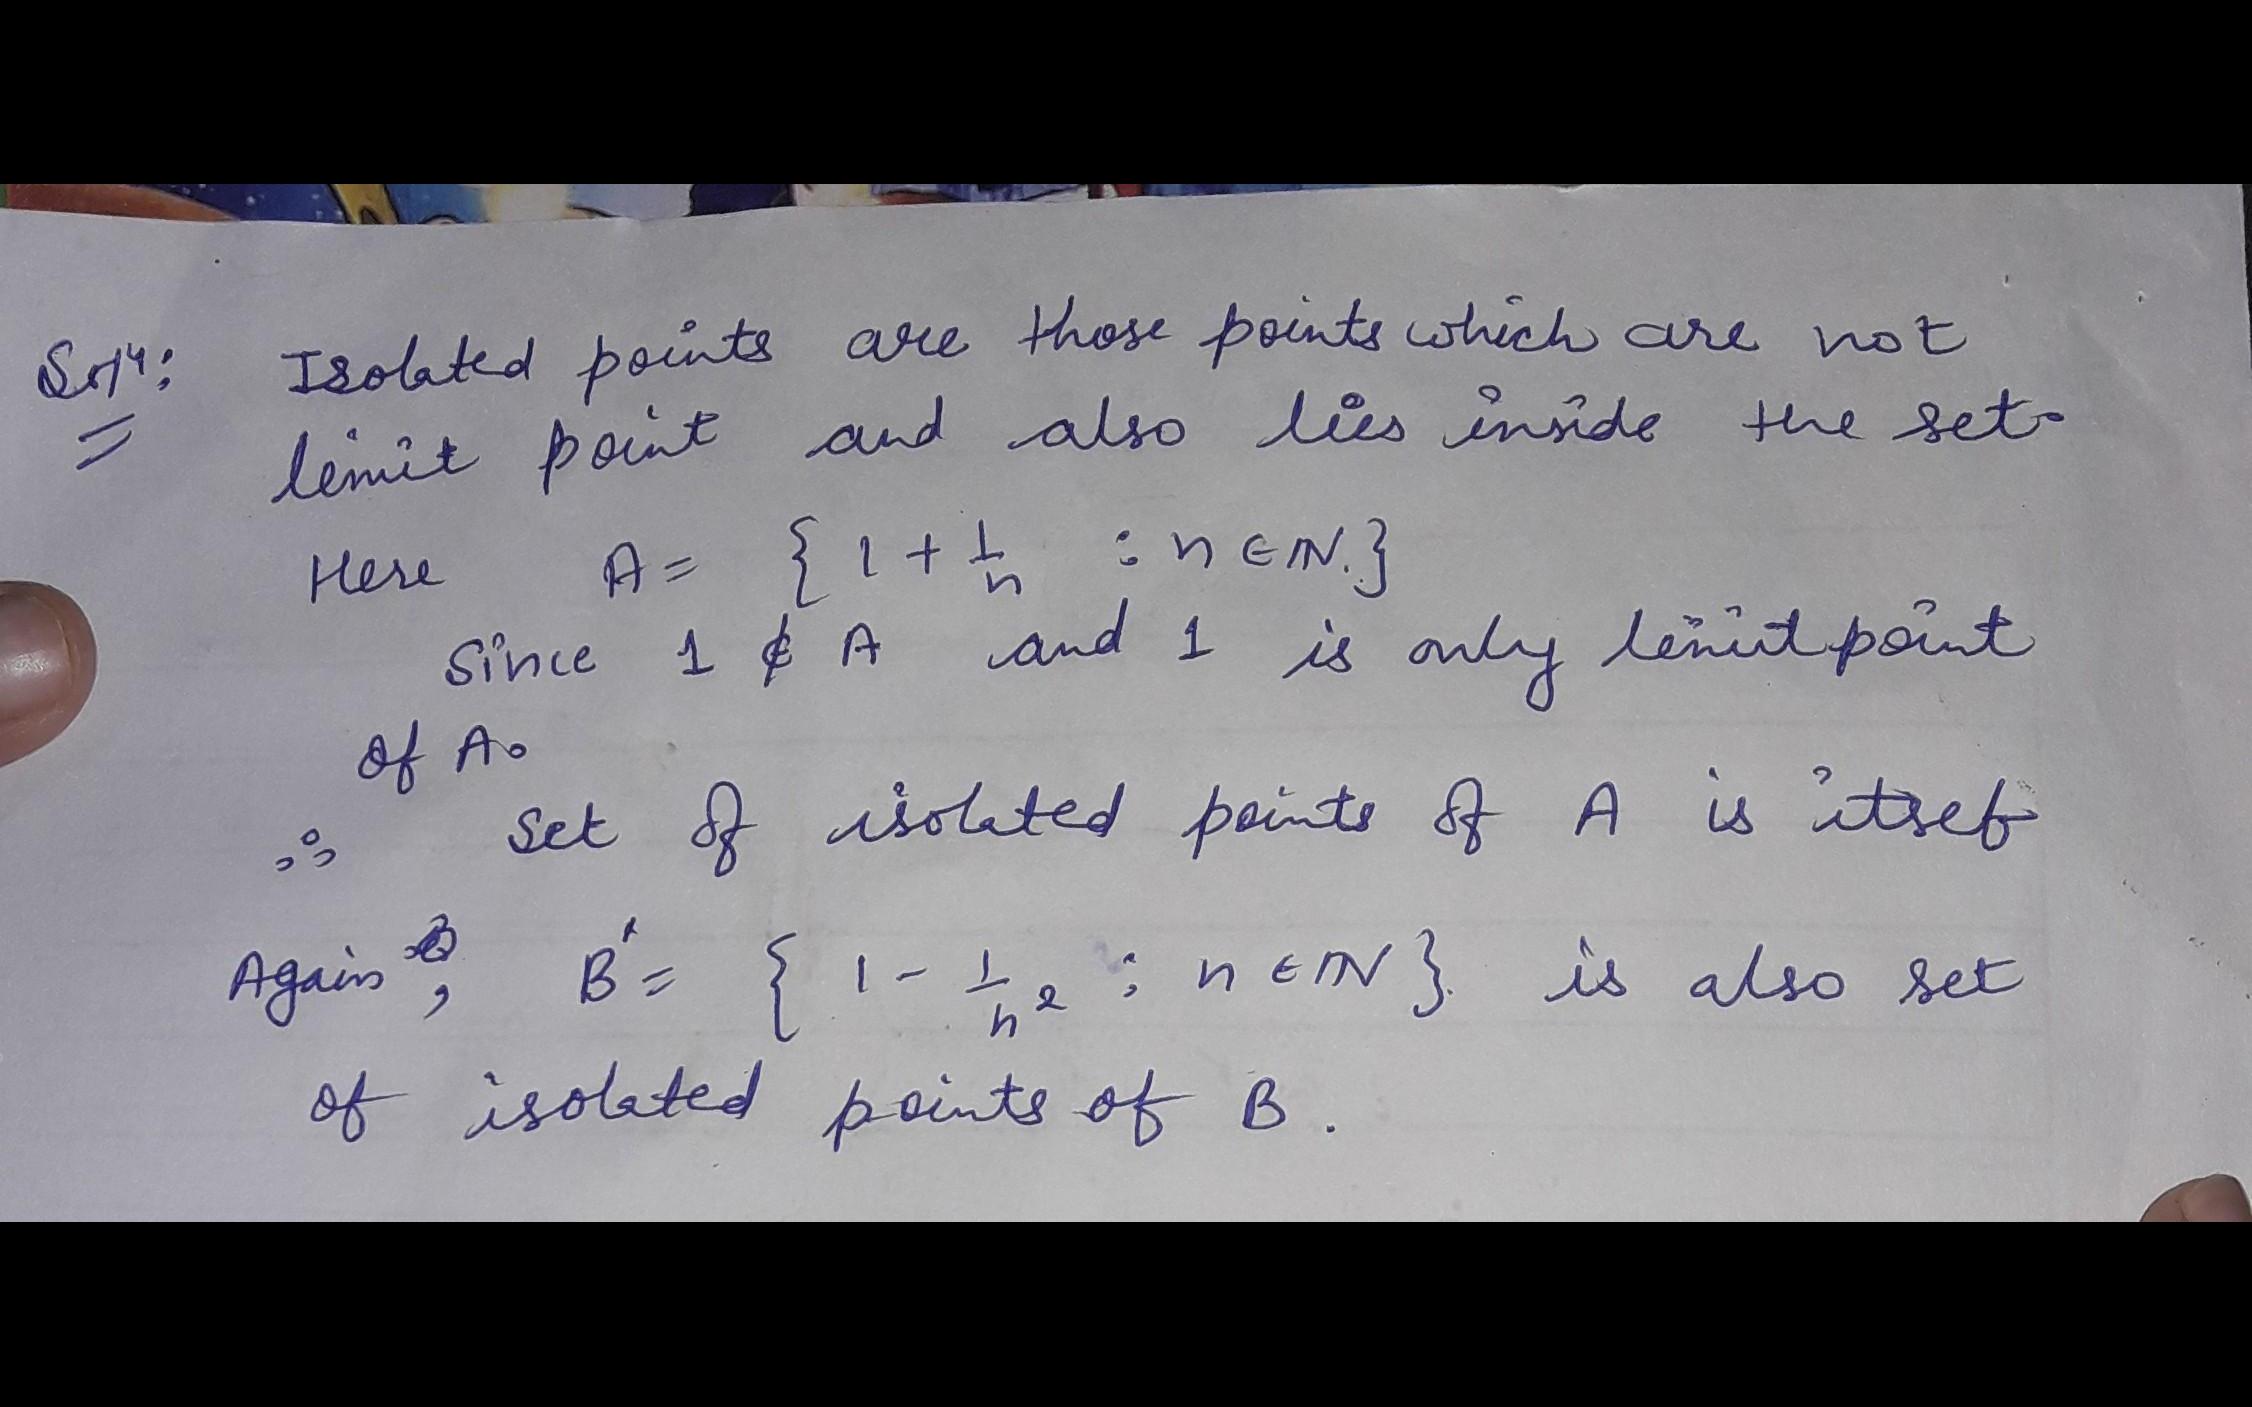 Solⁿ: Isolated points are those points which are not
limit point and also lies inside the set.
Here A = { 1 + 1/n : n ∈ IN. }
Since 1 ∉ A and 1 is only limit point
of A.
∴ Set of isolated points of A is itsef
Again, B' = { 1 - 1/n² : n ∈ IN }. is also set
of isolated points of B.